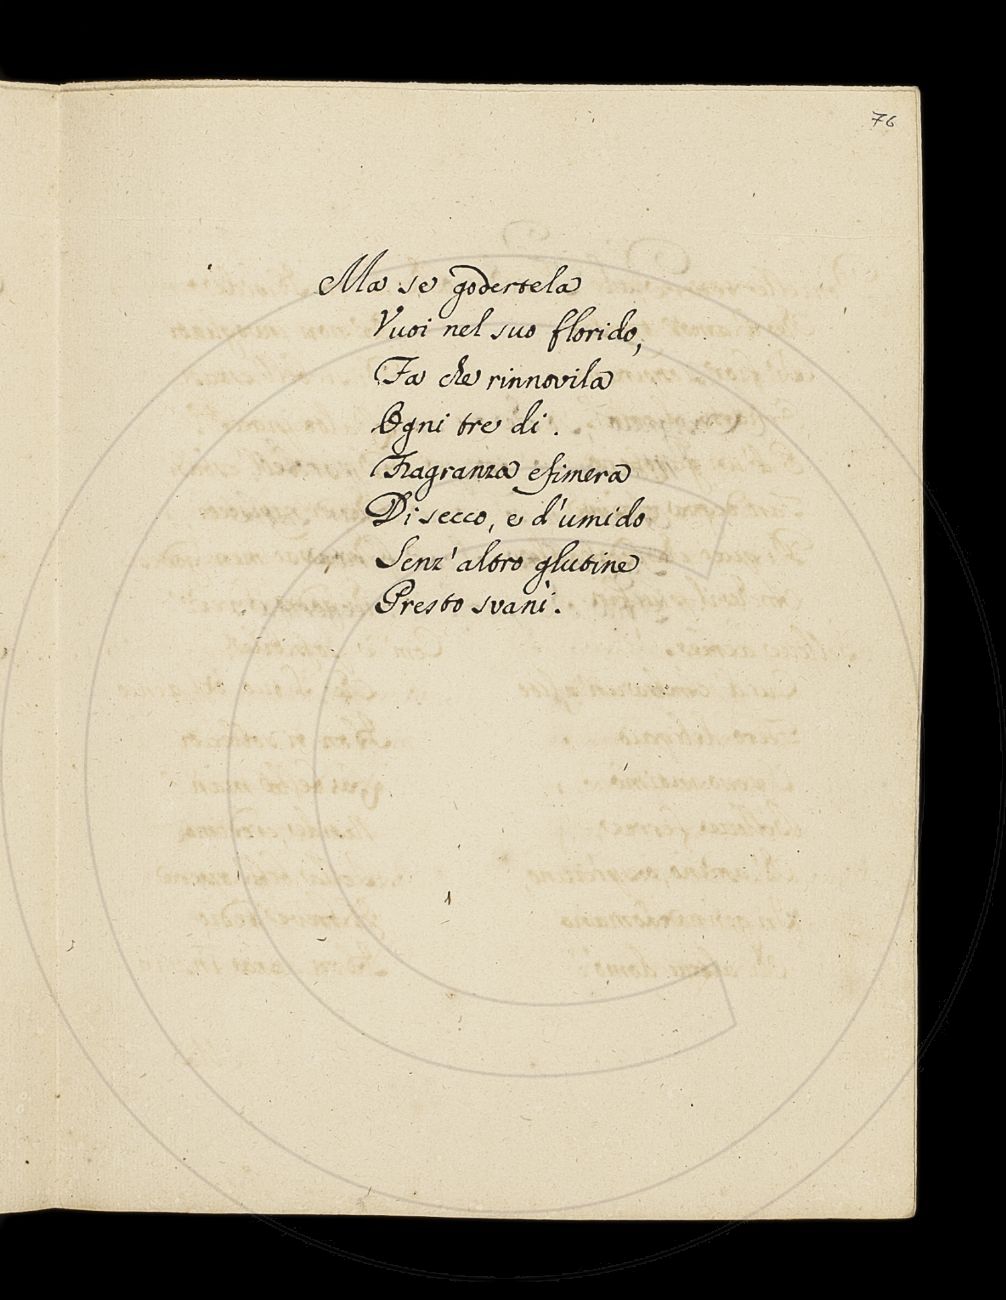 76
Ma se godertela
Vuoi nel suo florido,
Fa che rinnovila
Ogni tre di.
Fragranza efimera
Di secco, e d'umido
Senz' altro glutine
Presto svanì.